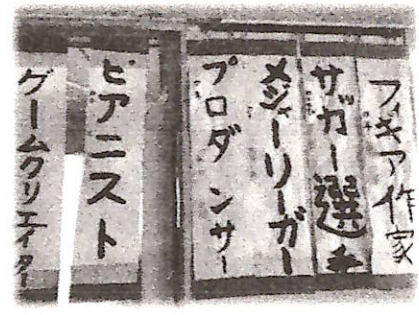 フィギア作家
サガー選手
メジャーリーガー
プロダンサー
ピアニスト
ゲームクリエイター